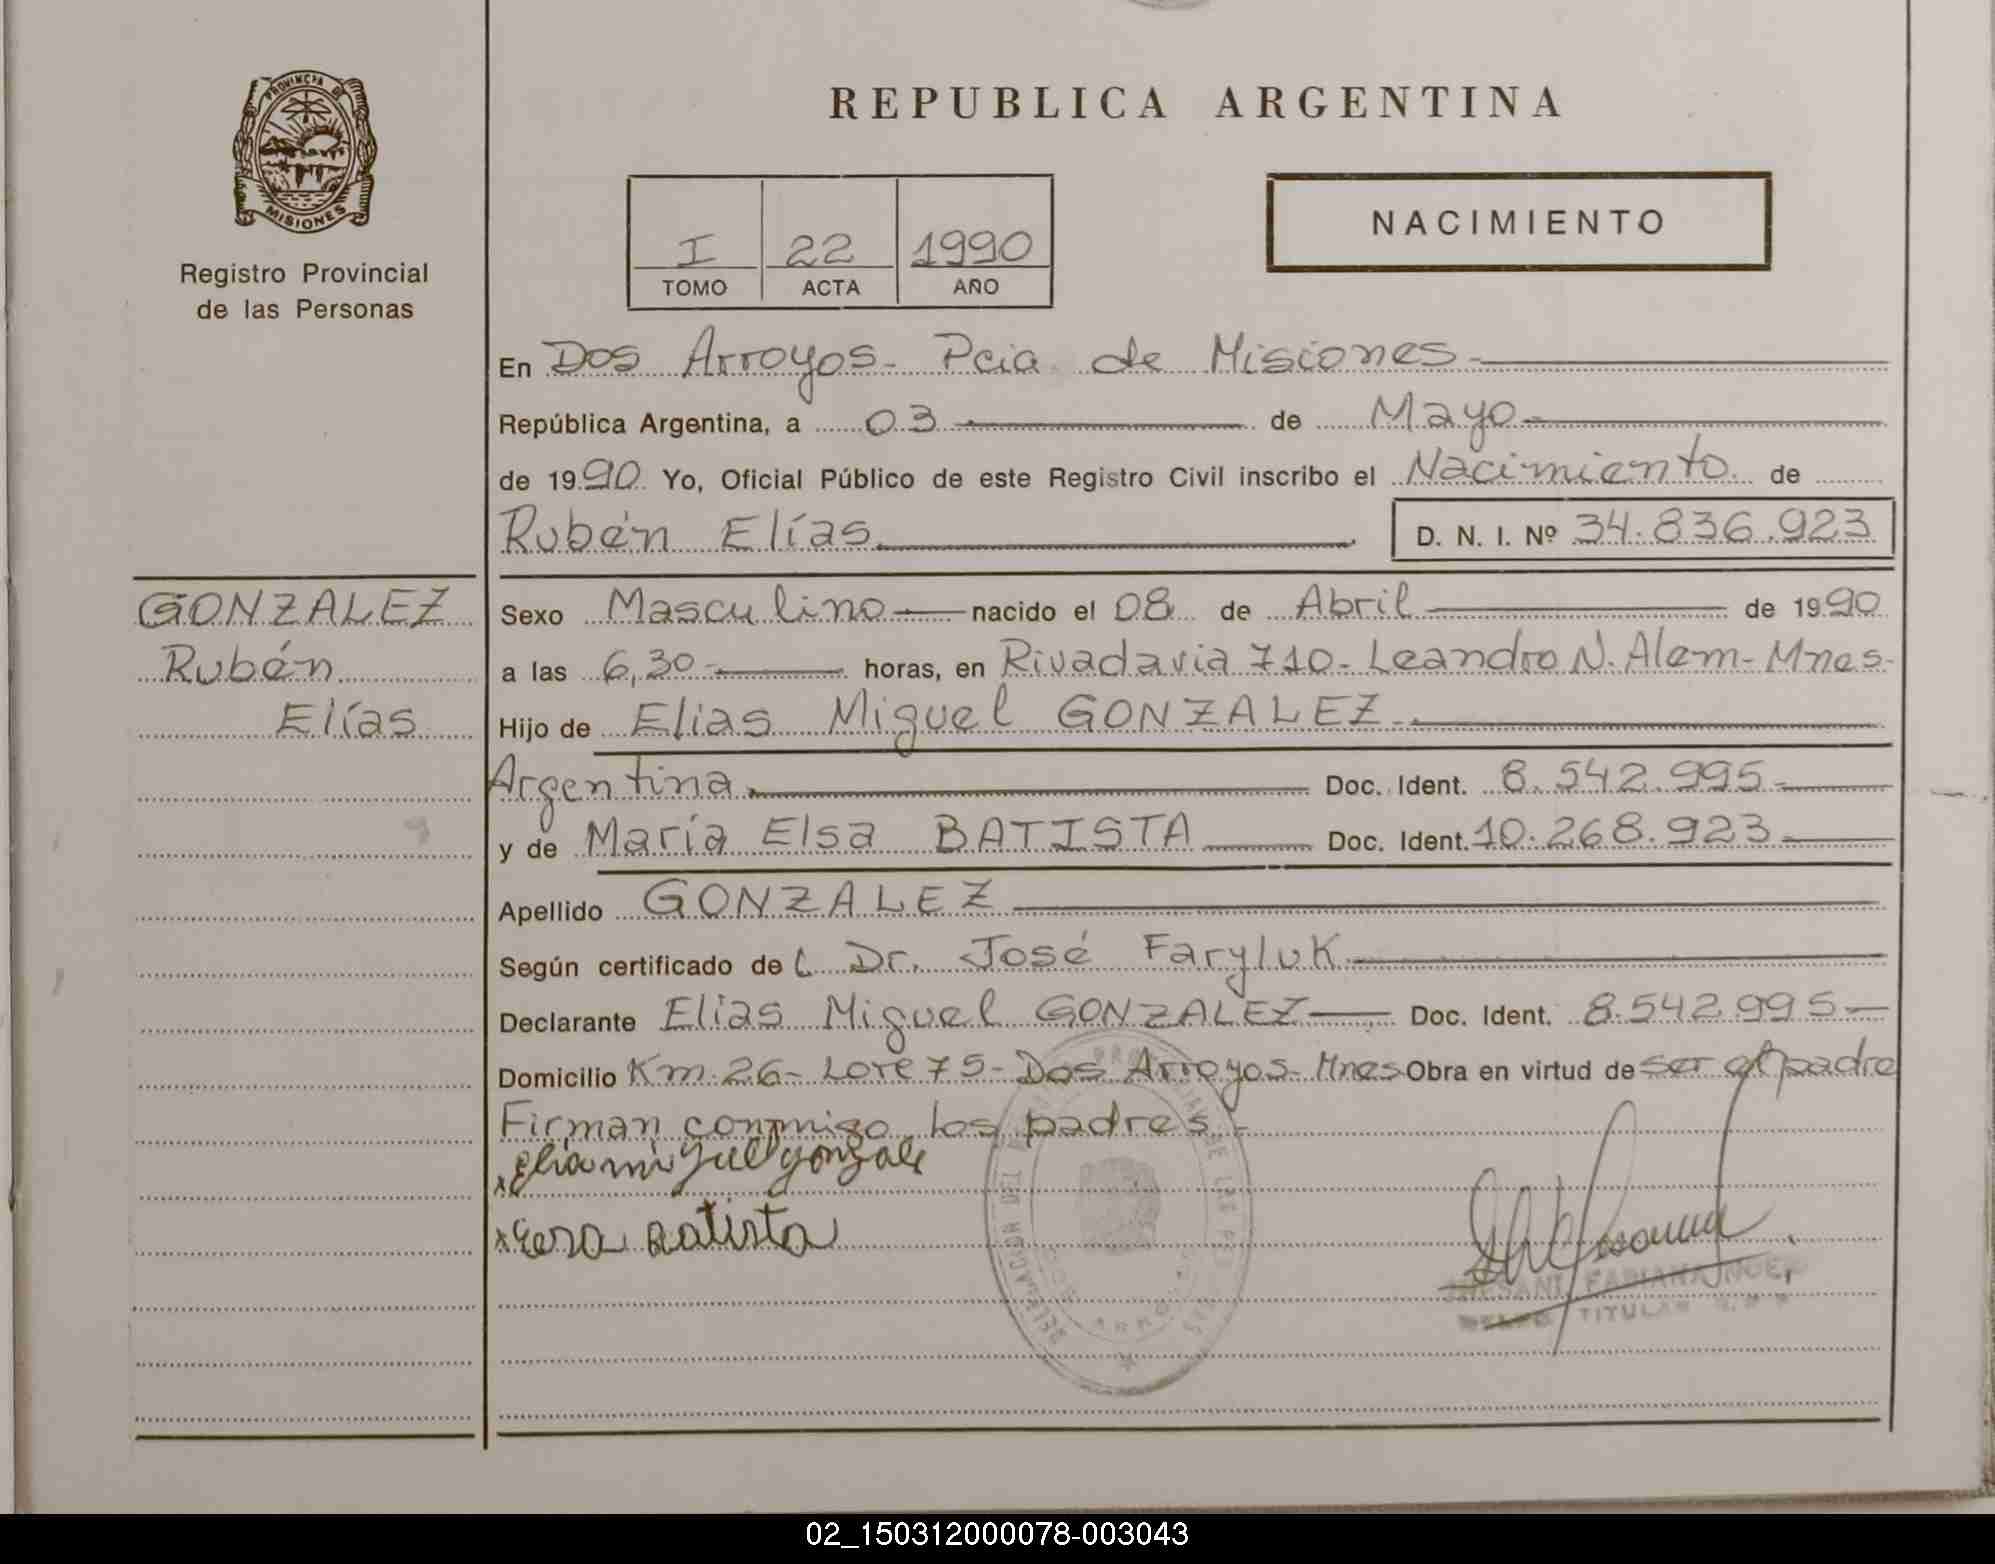 PROVINCIA DE
MISIONES
Registro Provincial
de las Personas
REPUBLICA ARGENTINA
I 22 1990
TOMO ACTA AÑO
NACIMIENTO
En Dos Arroyos - Pcia de Misiones -
República Argentina, a 03 de Mayo -
de 1990 Yo, Oficial Público de este Registro Civil inscribo el Nacimiento de
Rubén Elías D. N. I. Nº 34.836.923
GONZALEZ
Rubén
Elías
Sexo Masculino nacido el 08 de Abril de 1990
a las 6,30 - horas, en Rivadavia 710 - Leandro N. Alem - Mnes -
Hijo de Elias Miguel GONZALEZ -
Argentina Doc. Ident. 8.542.995 -
y de María Elsa BATISTA Doc. Ident. 10.268.923 -
Apellido GONZALEZ
Según certificado del Dr. José Faryluk
Declarante Elias Miguel GONZALEZ Doc. Ident. 8.542.995 -
Domicilio Km. 26 - Lote 75 - Dos Arroyos - Mnes Obra en virtud de ser el padre
Firman conmigo los padres -
x
x Batista
TITULAR
02_150312000078-003043